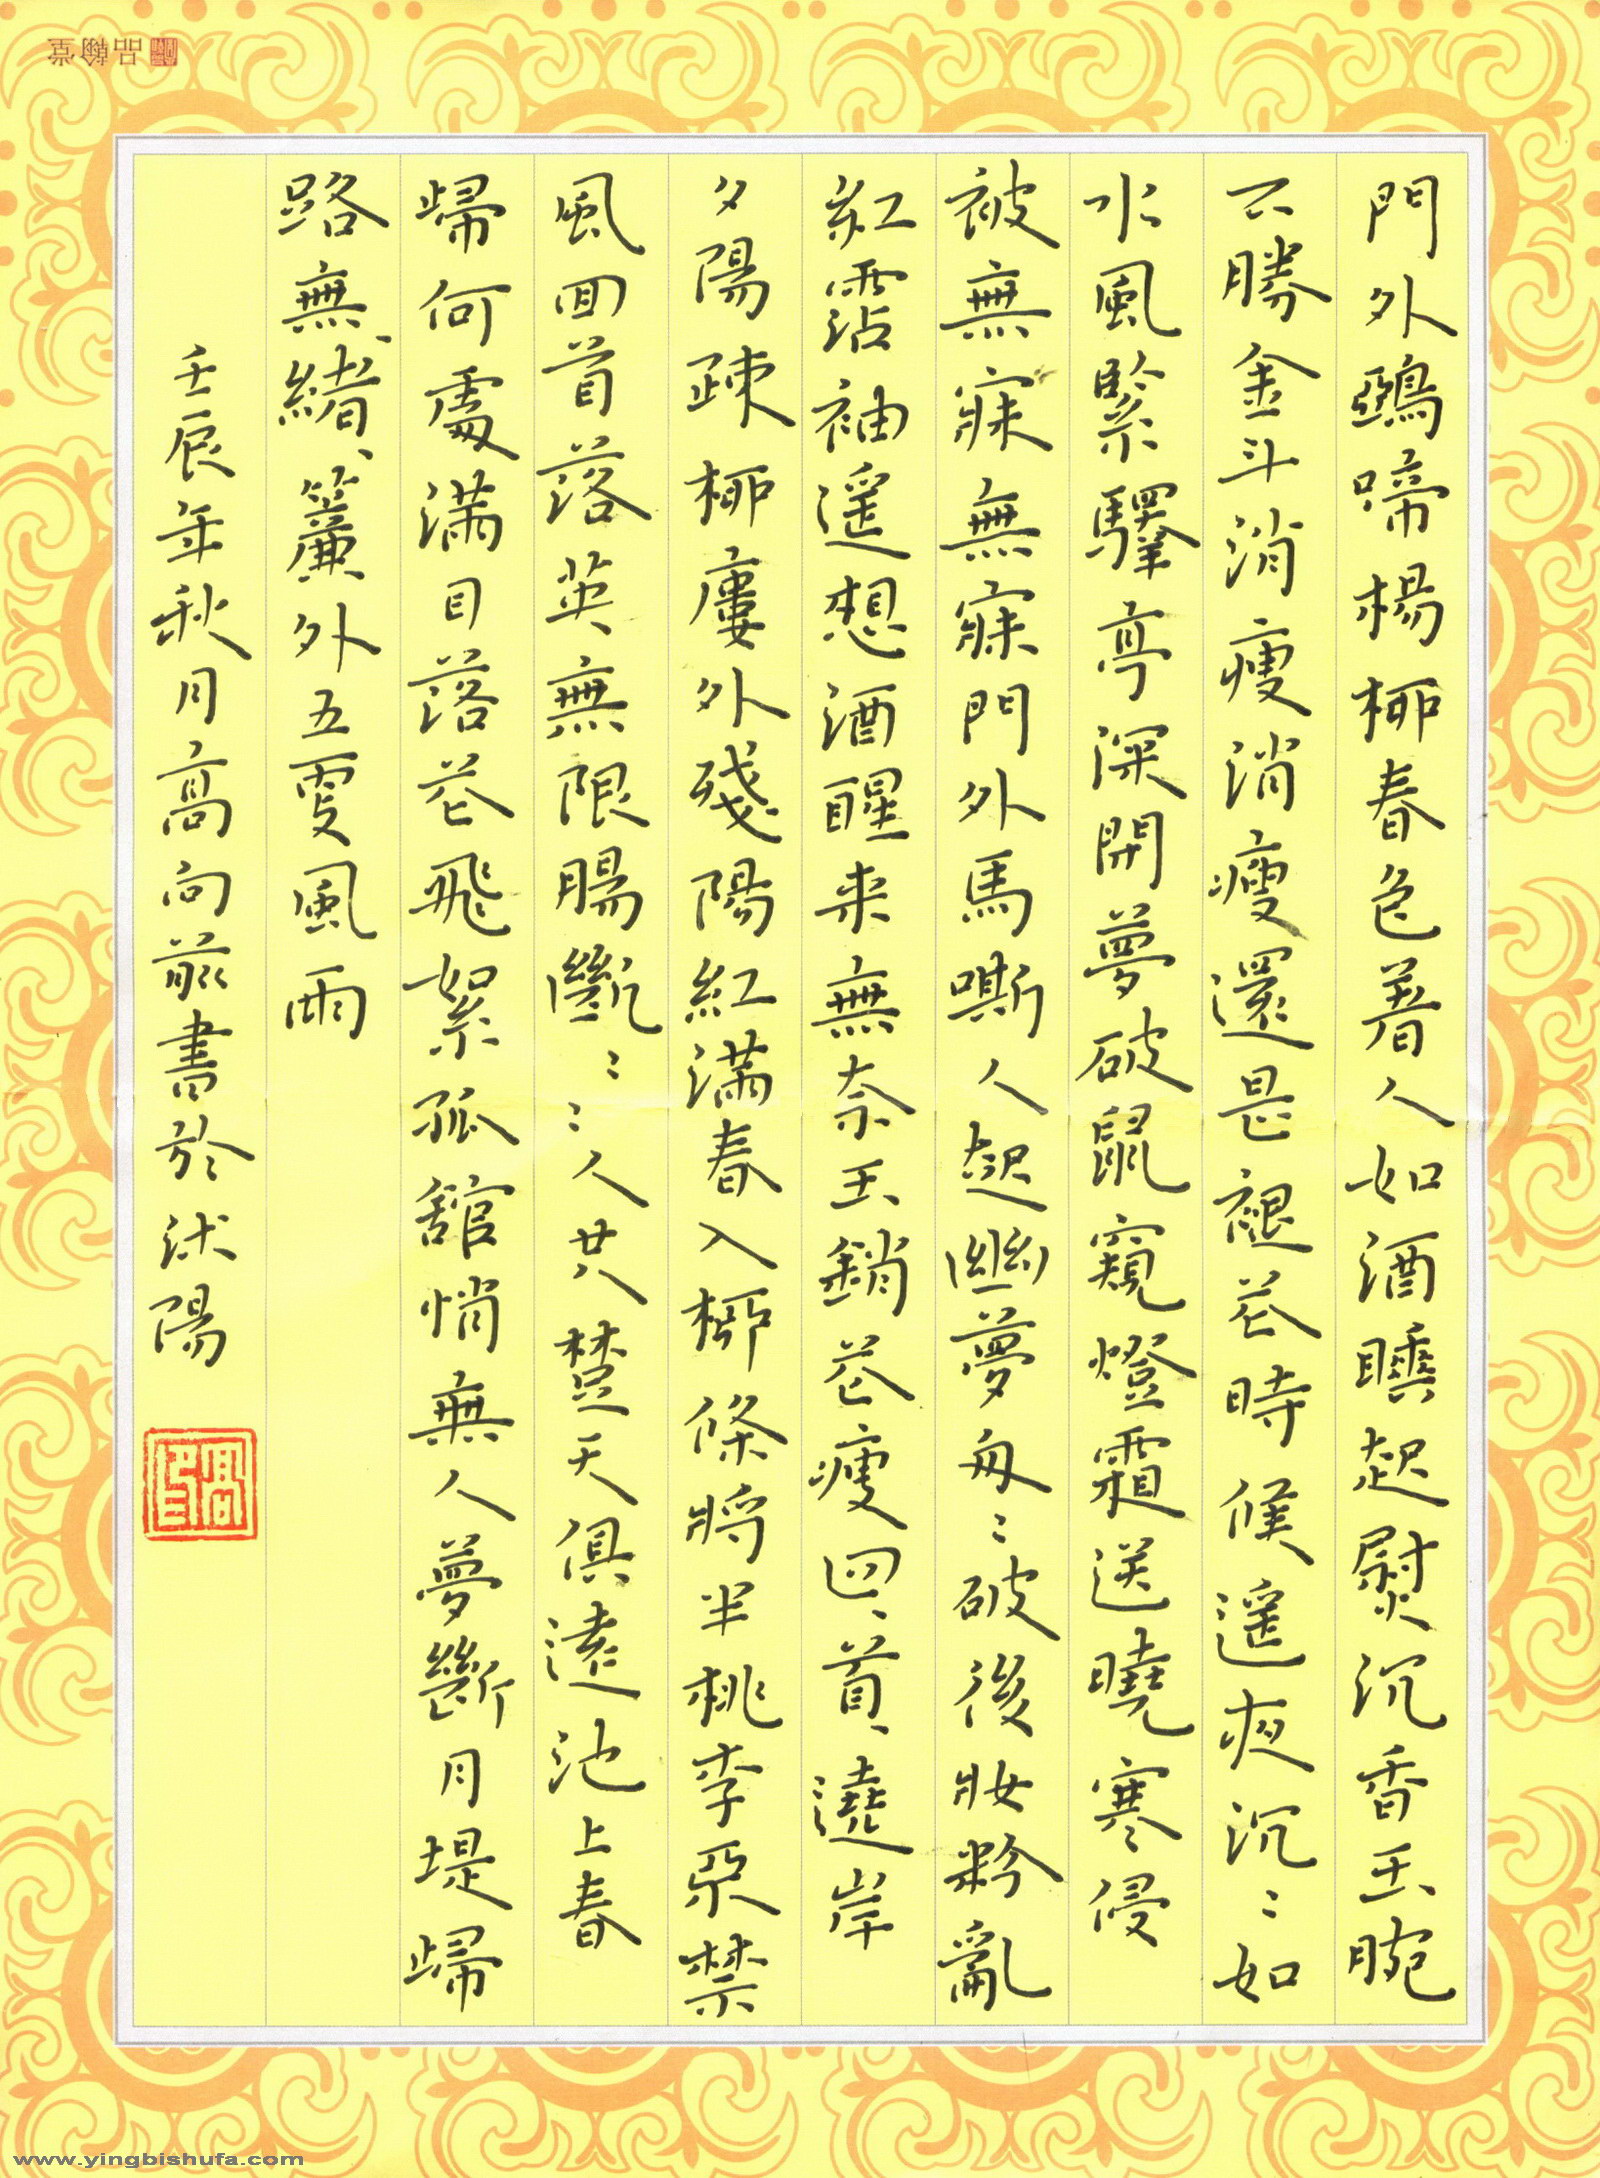 品翰堂
門外鵶啼楊柳春色着人如酒睡起熨沉香玉腕
不勝金斗消瘦消瘦還是褪花時候遙夜沉〻如
水風緊驛亭深閉夢破鼠窺燈霜送曉寒侵
被無寐無寐門外馬嘶人起幽夢匆〻破後妝粉亂
紅霑袖遥想酒醒来無奈玉銷花瘦回首遶岸
夕陽疎柳廔外殘陽紅滿春入柳條將半桃李不禁
風回首落英無限腸斷〻〻人共楚天俱遠池上春
歸何處滿目落花飛絮孤舘悄無人夢斷月堤歸
路無緒簾外五更風雨
壬辰年秋月高向前書於沭陽
www.yingbishufa.com